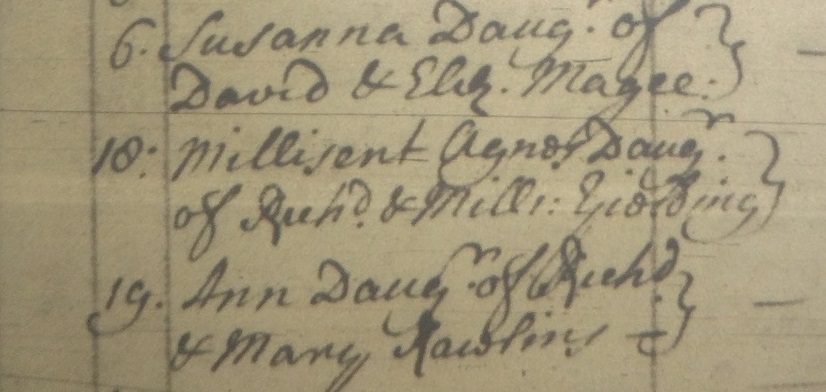 6. Susanna Daugr. of
David & Eliz. Magee.
18. Millisent Agnes Daugr.
of Richd. & Mills:
19. Ann Daugr. of Richd.
& Mary Rawlins